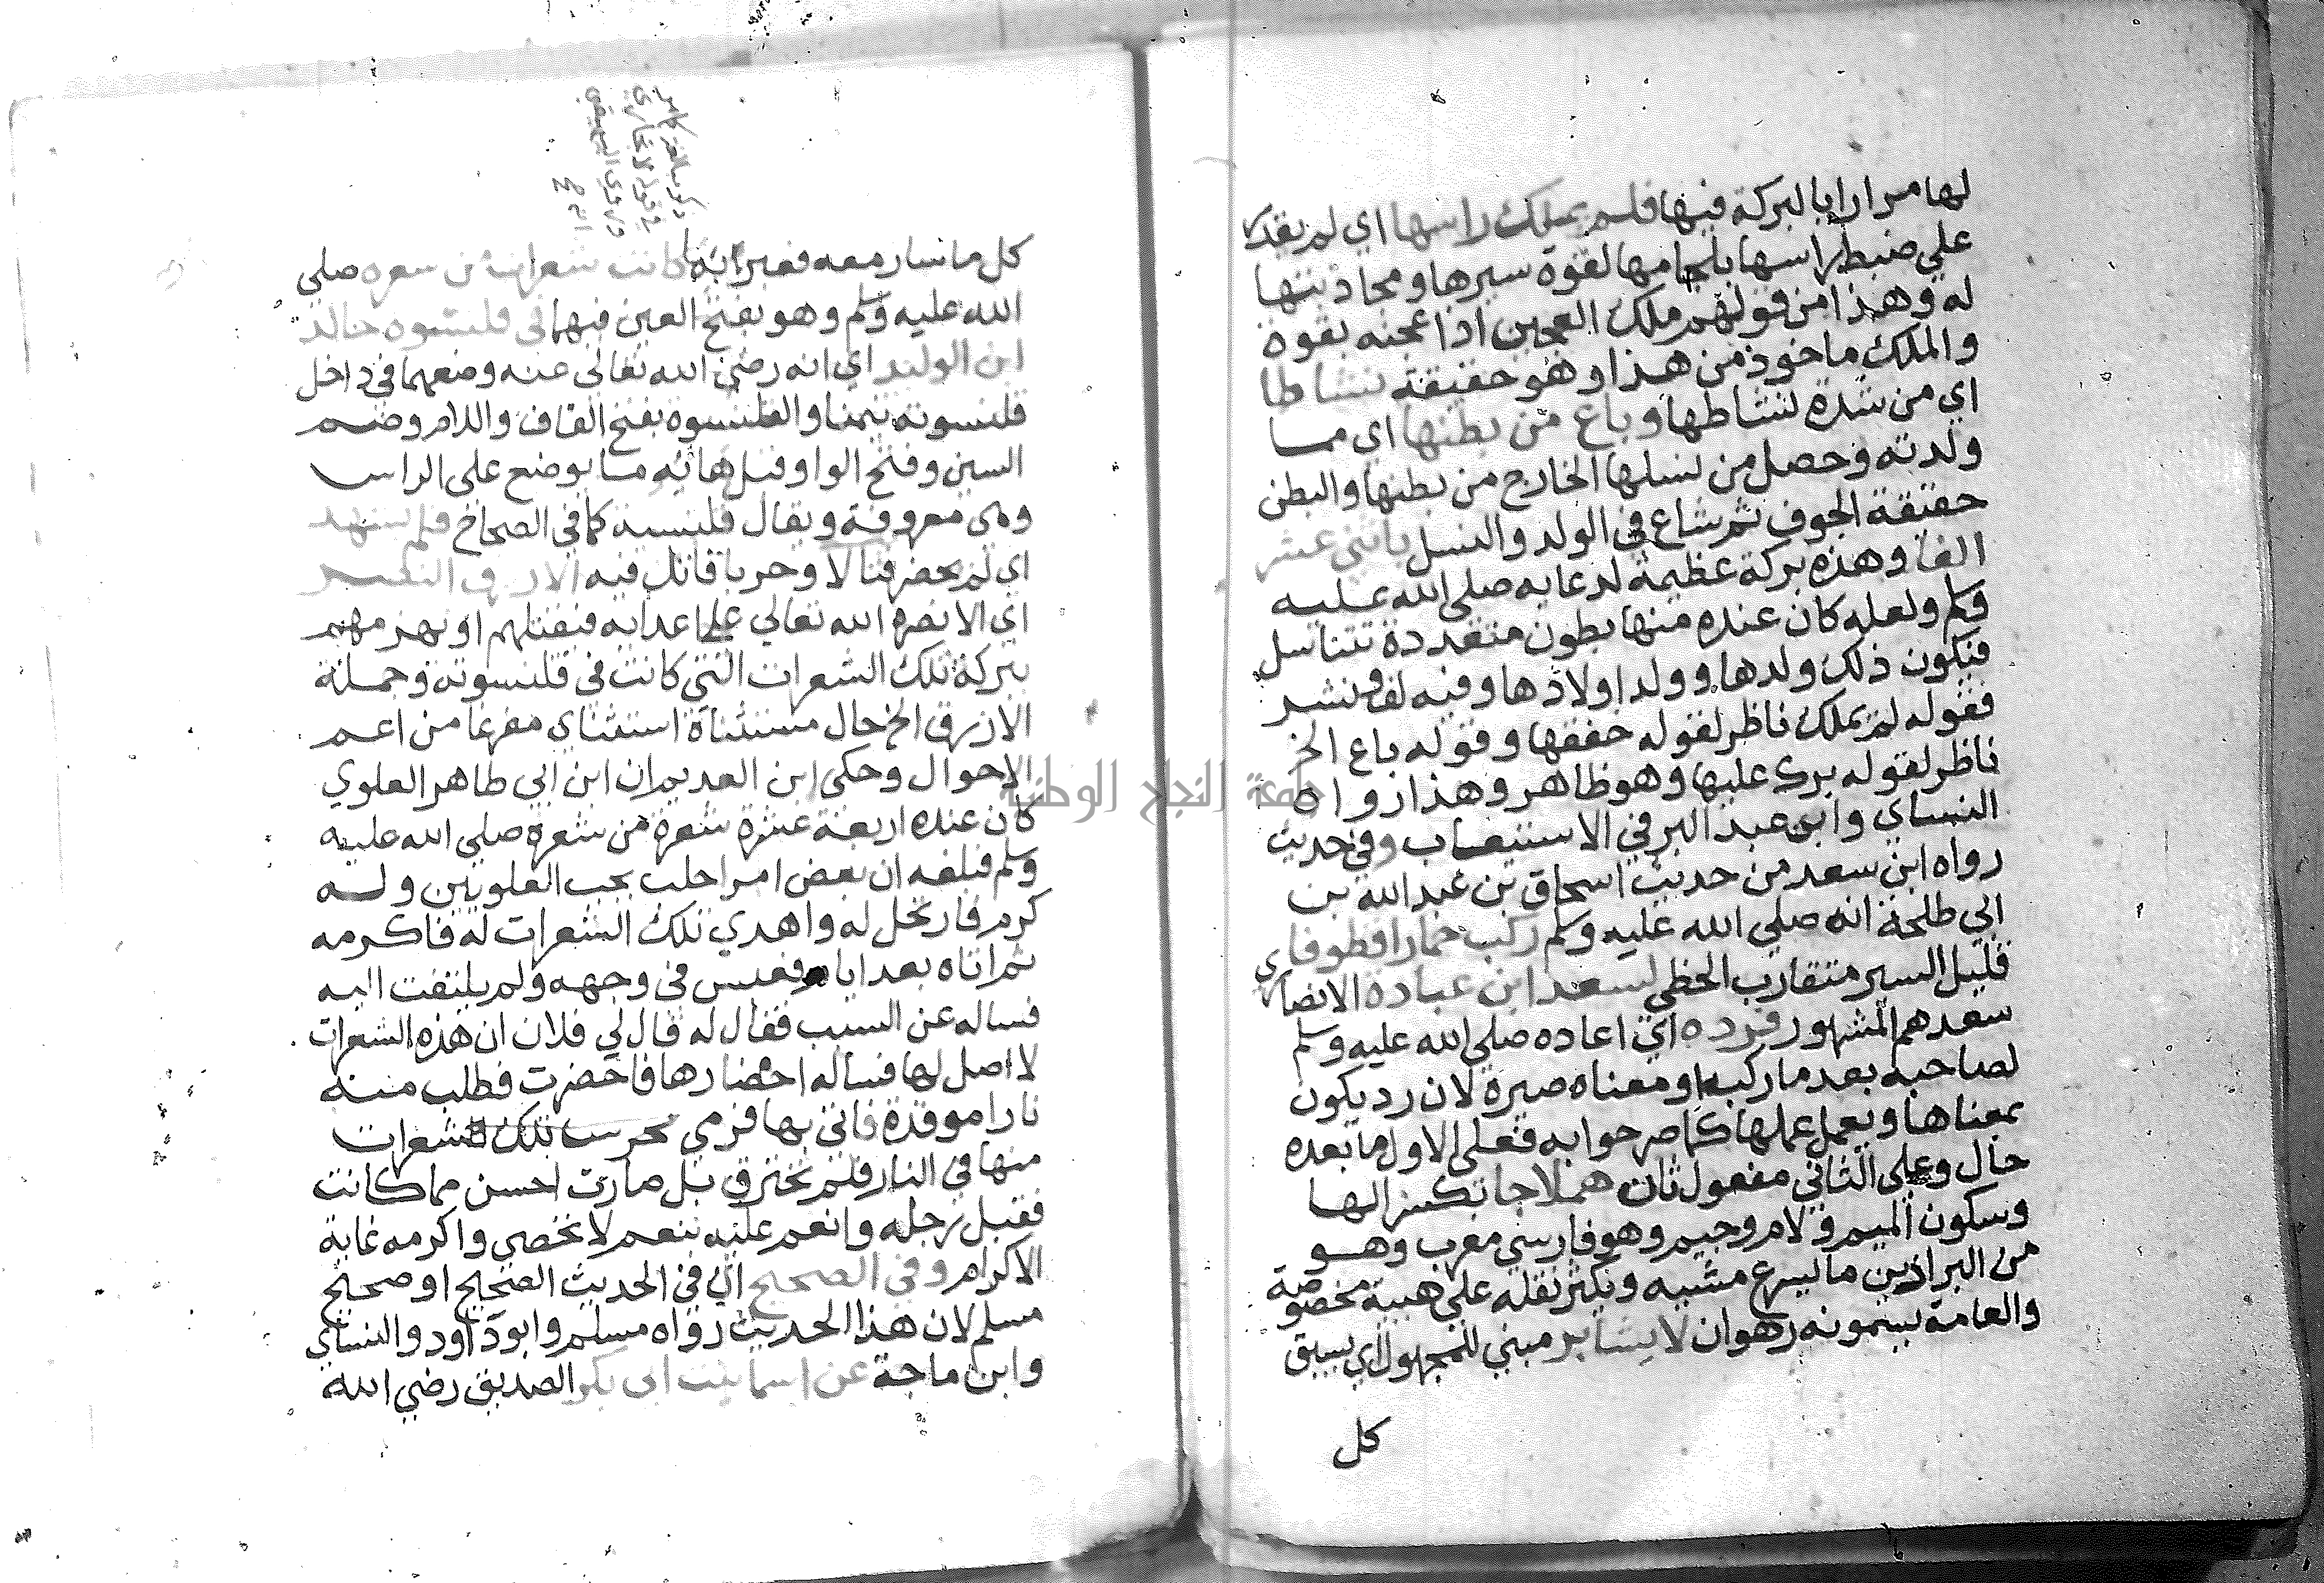 لها مرارا بالبركة فيها فلم يملك راسها اي لم يقدر
علي ضبط راسها بلجامها لقوة سيرها ومجاذبتها
له وهذا من قولهم ملك العجين اذا عجنه بقوة
والملك ماخوذ من هذا وهو حقيقة نشاطا
اي من شدة نشاطها وباع من بطنها اي مما
ولدته وحصل من نسلها الخارج من بطنها والبطن
حقيقة الجوف ثم شاع في الولد والنسل باثني عشر
الفا وهذه بركة عظيمة لدعايه صلي الله عليه
وسلم ولعله كان عنده منها بطون متعددة تتناسل
فيكون ذلك ولدها وولد اولادها وفيه لف ونشر
فقوله لم يملك ناظر لقوله خفقها وقوله باع الخ
ناظر لقوله برك عليها وهو ظاهر وهذا رواه
النساي وابن عبد البر في الاستيعاب وفي حديث
رواه ابن سعد من حديث اسحاق بن عبد الله بن
ابي طلحة انه صلي الله عليه وسلم ركب حمارا قطوفا اي
قليل السير متقارب الخطي لسعد ابن عبادة الانصاري
سعدهم المشهور فرده اي اعاده صلي الله عليه وسلم
لصاحبه بعد ما ركبه او معناه صيره لان رد يكون
بمعناها ويعمل عملها كما صرحوا به فعلي الاول ما بعده
حال وعلي الثاني مفعول ثان هملاجا بكسر الها
وسكون الميم ولام وجيم وهو فارسي معرب وهو
من البراذين ما يسرع مشيه ويكثر نقله علي هيية مخصوصة
والعامة يسمونه رهوان لا يساير مبني للمجهول اي يسبق
كل
كل ما ساير معه فغيرابه كانت شعرات من شعره صلي
الله عليه وسلم وهو بفتح العين فيهما في قلنسوه خالد
ابن الوليد اي انه رضي الله تعالي عنه وضعهما في داخل
قلنسوته تيمنا والقلنسوه بفتح القاف واللام وضم
السين وفتح الواو قبل هايه ما يوضع على الراس
وهي معروفة ويقال قلنسيه كما في الصحاح فلم يشهد
اي لم يحضر قتالا وحربا قاتل فيه الا رزق النصر
اي الا نصره الله تعالي علي اعدايه فيقتلهم او يهزمهم
ببركة تلك الشعرات التي كانت في قلنسوته وجملة
الا رزق الخ حال مستثناة استثناي مفرغا من اعم
الاحوال وحكى ابن العديم ان ابن ابي طاهر العلوي
كان عنده اربعة عشرة شعرة من شعره صلي الله عليه
وسلم فبلغه ان بعض امرا حلب يحب العلويين وله
كرم فارتحل له واهدي تلك الشعرات له فاكرمه
ثم اتاه بعد ايام فعبس في وجهه ولم يلتفت اليه
فساله عن السبب فقال له قال لي فلان ان هذه الشعرات
لا اصل لها فساله احضارها فاحضرت فطلب منه
نارا موقدة فاتي بها فرمي تلك الشعرات
منها في النار فلم تحترق بل صارت احسن مما كانت
فقبل رجله وانعم عليه بنعم لا تحصي واكرمه غاية
الاكرام وفي الصحيح اي في الحديث الصحيح او صحيح
مسلم لان هذا الحديث رواه مسلم وابو داود والنساي
وابن ماجة عن اسما بنت ابي بكر الصديق رضي الله
جامعة النجاح الوطنية